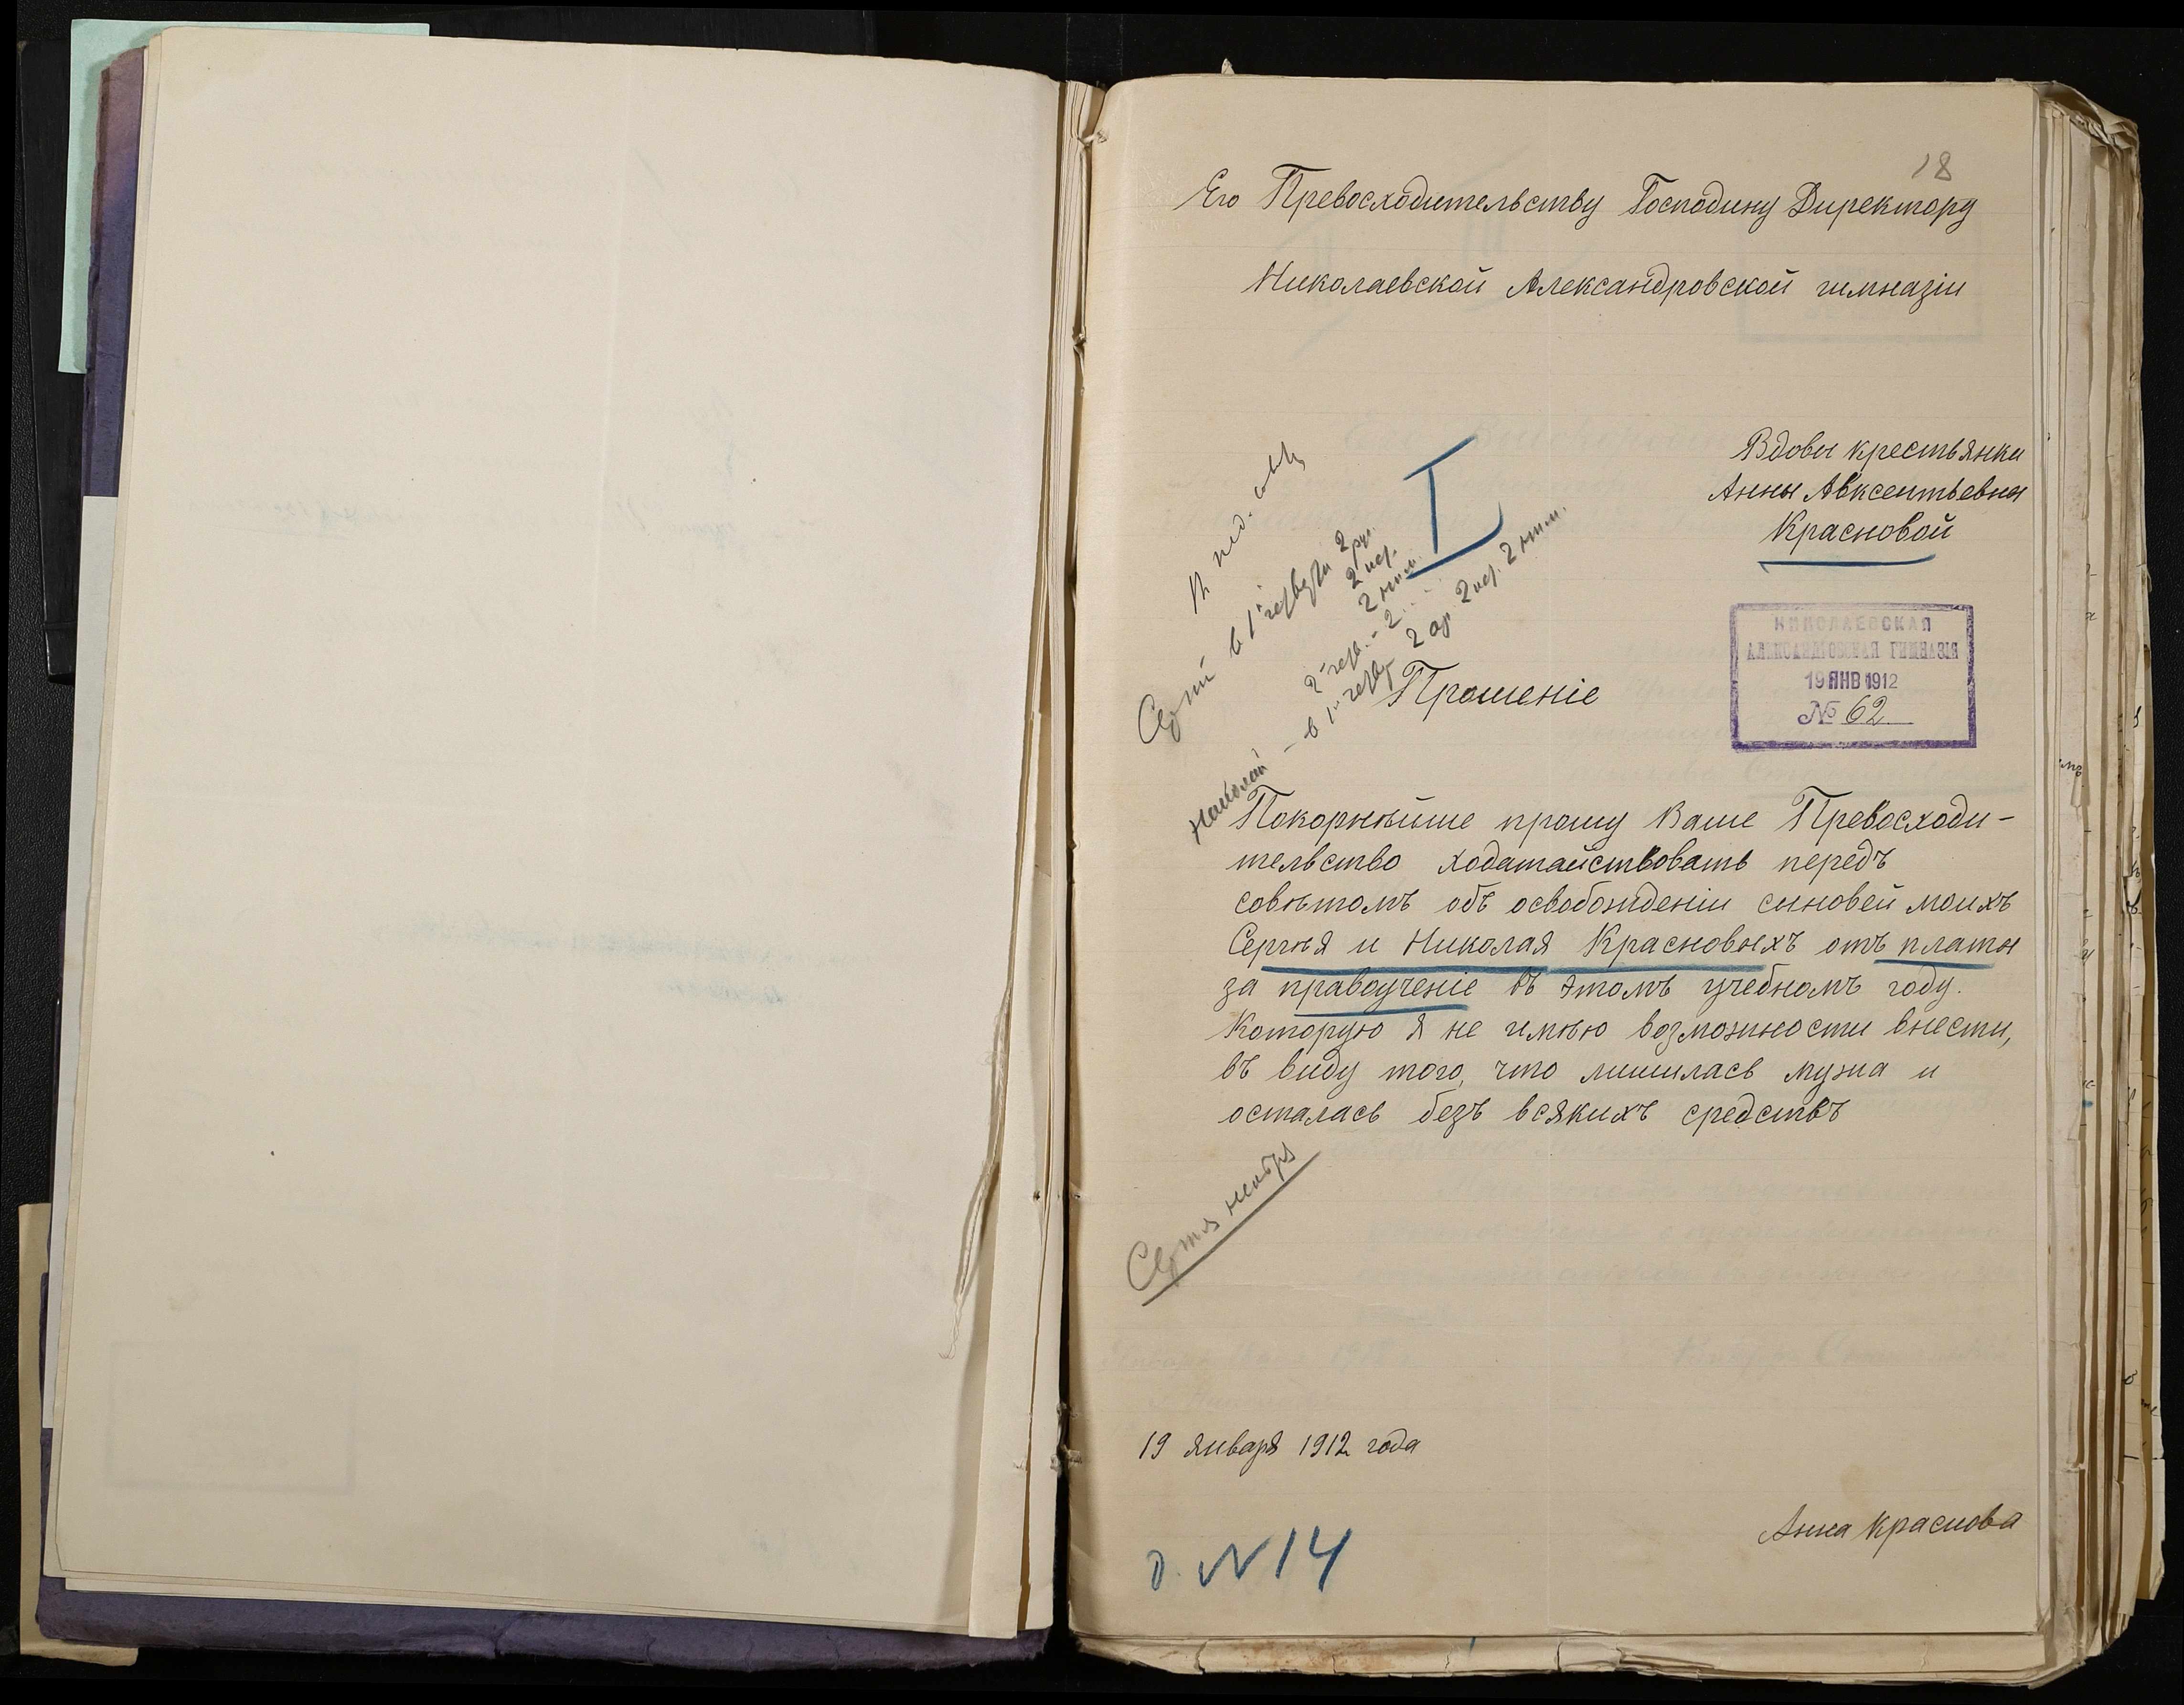 18
Его Превосходительству Господину Директору
Николаевской Александровской гимназіи
Вдовы крестьянки
Анны Авксентьевны
Красновой
К пед. совѣту
I
Сергѣй в 1й четверти 2 рус.
2 нѣм.
2й четв. - 2
Николай - в 1й четверт 2 2 2 нѣм.
НИКОЛАЕВСКАЯ
АЛЕКСАНДРОВСКАЯ ГИМНАЗІЯ
19 ЯНВ 1912
№ 62
Прошеніе
Покорнѣйше прошу Ваше Превосходи-
тельство ходатайствовать передъ
совѣтомъ объ освобожденіи сыновей моихъ
Сергѣя и Николая Красновыхъ отъ платы
за правоученіе въ этомъ учебномъ году.
Которую я не имѣю возможности внести,
въ виду того, что лишилась мужа и
осталась безъ всякихъ средствъ
19 января 1912 года
Анна Краснова
д. N 14